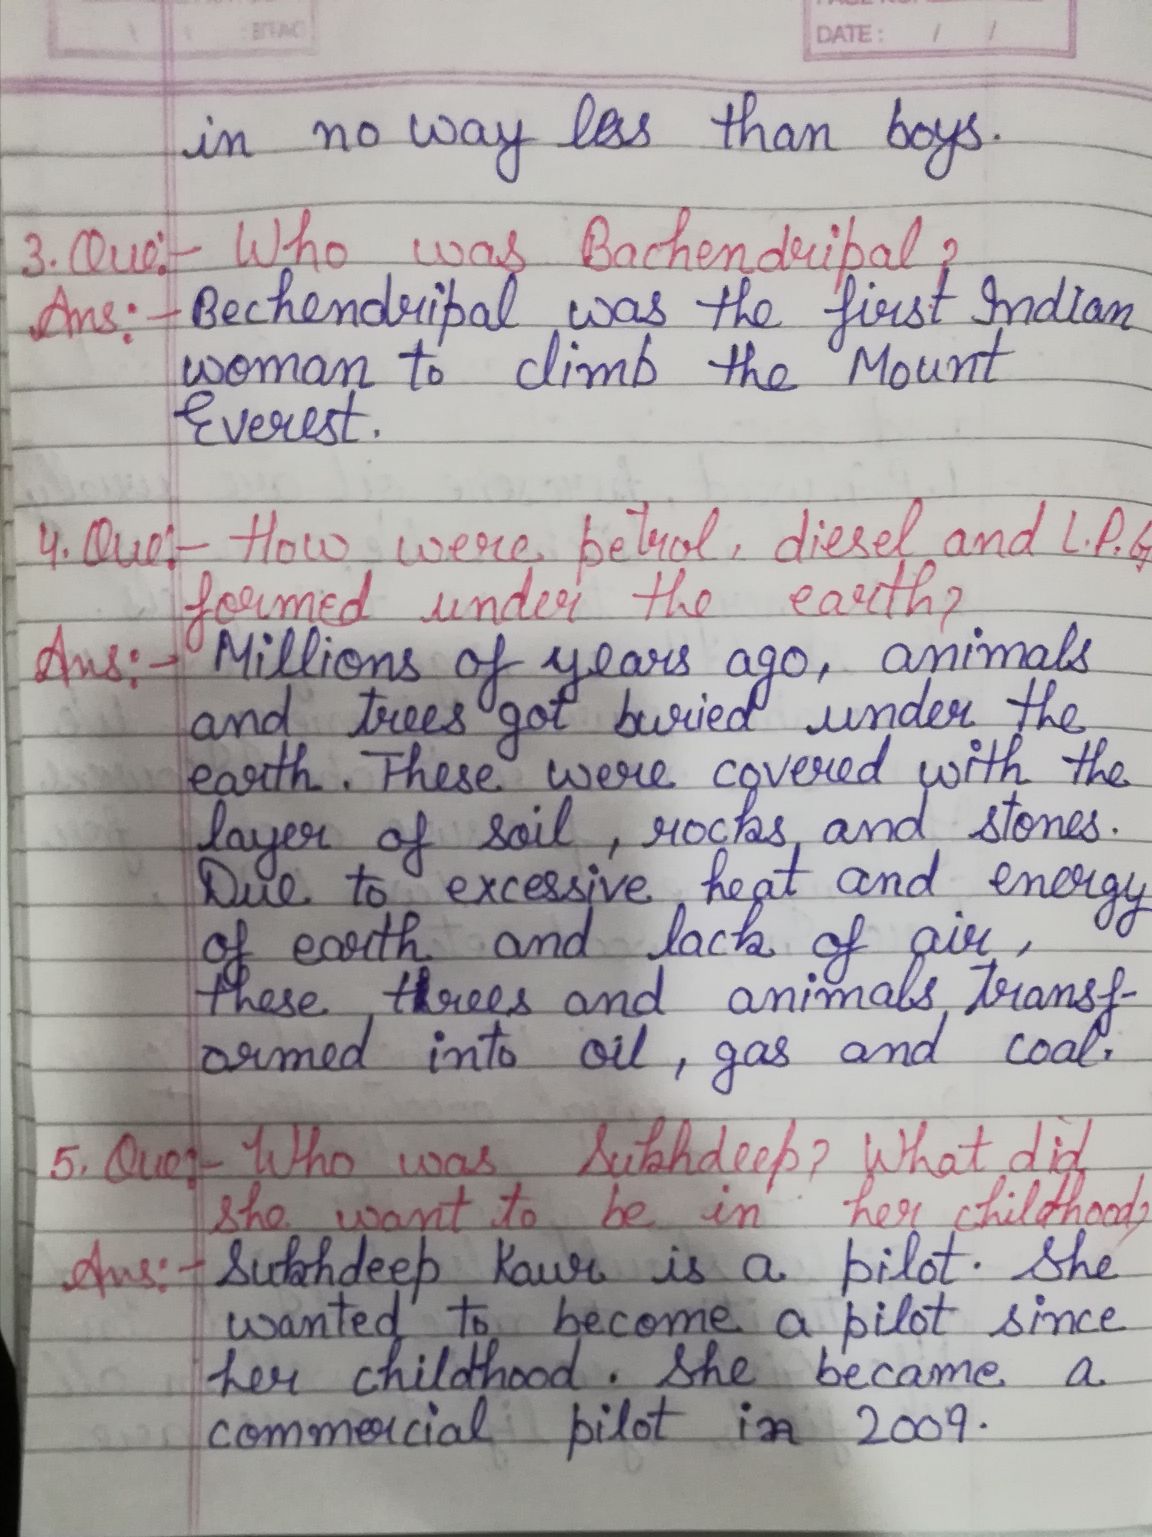 DATE: / /
in no way less than boys.
3. Que:- Who was Bachendripal?
Ans:- Bechendripal was the first Indian
woman to climb the Mount
Everest.
4. Que:- How were petrol, diesel and L.P.G
formed under the earth?
Ans:- Millions of years ago, animals
and trees got buried under the
earth. These were covered with the
layer of soil, rocks and stones.
Due to excessive heat and energy
of earth and lack of air,
these threes and animals transf-
ormed into oil, gas and coal.
5. Que:- Who was Sukhdeep? What did
she want to be in her childhood?
Ans:- Sukhdeep Kaur is a pilot. She
wanted to become a pilot since
her childhood. She became a
commercial pilot in 2009.